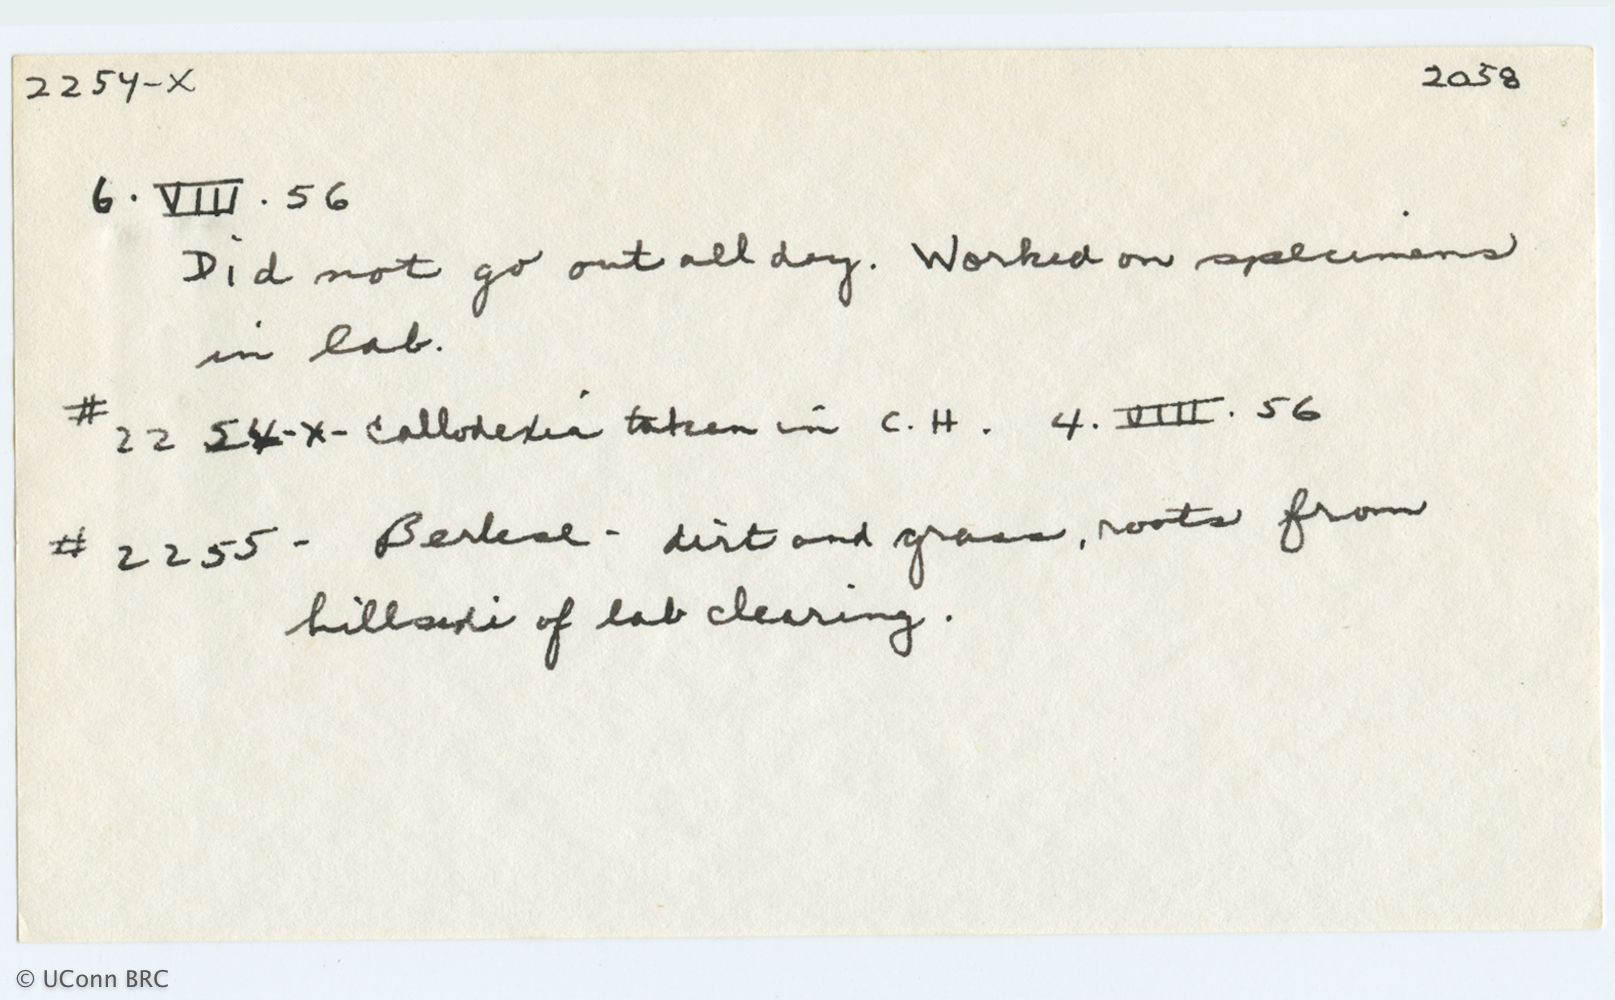 2254-X 2058
6. VIII. 56
Did not go out all day. Worked on specimens
in lab.
# 2254-X- Callodexia taken in C.H. 4. VIII. 56
# 2255 - Berlese - dirt and grass, roots from
hillside of lab clearing.
© UConn BRC